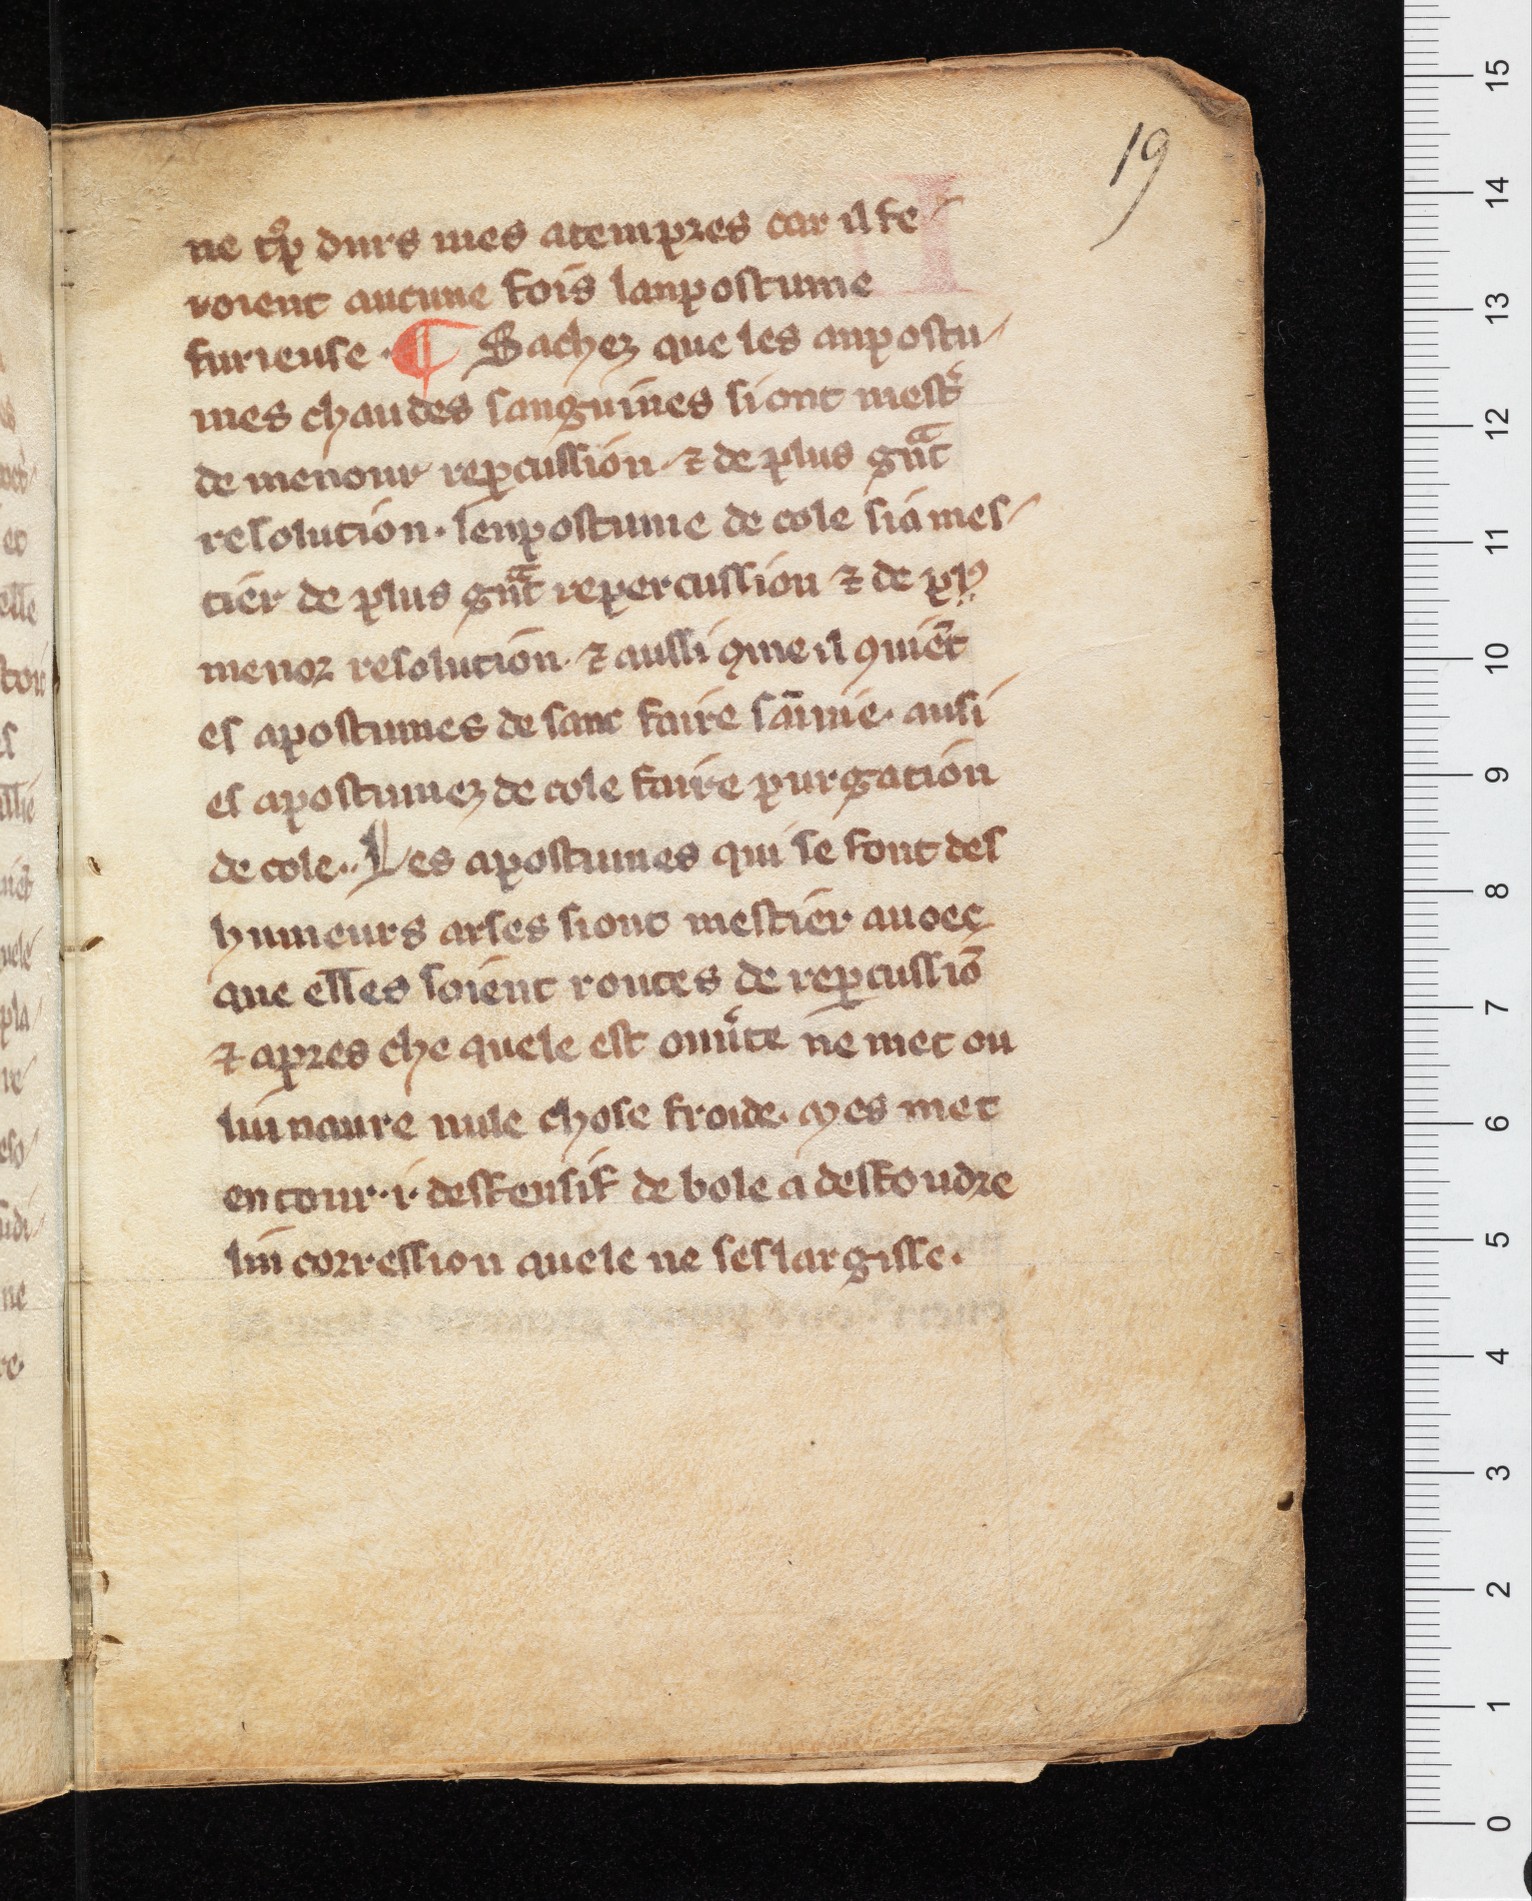 19
ne tͦp durs mes atempres car il fe-
roient aucune fois lanpostume
furieuse · ¶ Sachez que les anpostu-
mes chaudes sanguines si ont mest͛
de menour reꝑcussion · ⁊ de plus gnᷓt
resolution · lenpostume de cole si a mes-
tier de plus gnᷓt repercussion ⁊ de plꝰ
menor resolution · ⁊ aussi ꝯme il ꝯuie̅t
es apostumes de sanc faire sa̅inie · ausi
es apostumez de cole faire purgation
de cole · Les apostumes qui se font des
humeurs arses si ont mestier avoec
que elles soient routes de reꝑcussio̅
⁊ apres che quele est ouu͛te ne met ou
lui naure nule chose froide · Mes met
entour · i · desfensif de bole a desfoudre
lui corression quele ne seslargisse ·